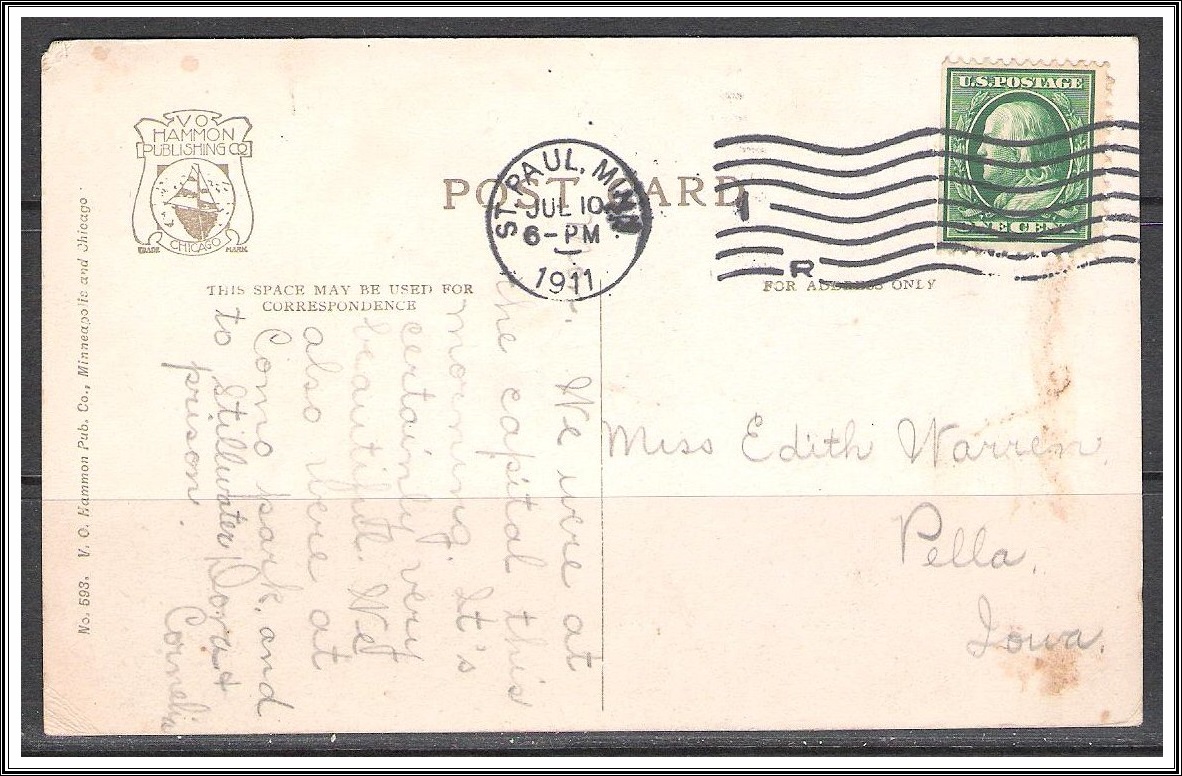 V.O.
HAMMON
PUBLISHING CO
TRADE CHICAGO MARK
POST CARD
THIS SPACE MAY BE USED FOR
CORRESPONDENCE
FOR ADDRESS ONLY
ST. PAUL, MINN.
JUL 10
6-PM
1911
1
R
U.S. POSTAGE
ONE CENT
No. 593. V. O. Hammon Pub. Co., Minneapolis and Chicago
We were at
the capital this
morning. It's
certainly very
beautiful. We
also were at
Como park, and
to Stillwater
prison. Dora &
Cornelia
Miss Edith Warren.
Pella,
Iowa.